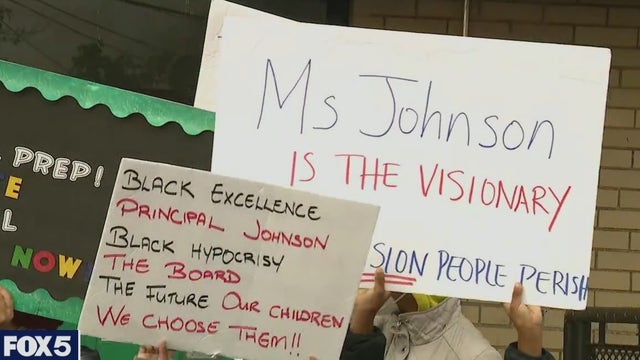 PREP!
E
L
NOW
BLACK EXCELLENCE
PRINCIPAL JOHNSON
BLACK HYPOCRISY
THE BOARD
THE FUTURE OUR CHILDREN
WE CHOOSE THEM!!
Ms Johnson
IS THE VISIONARY
SION PEOPLE PERISH
FOX 5